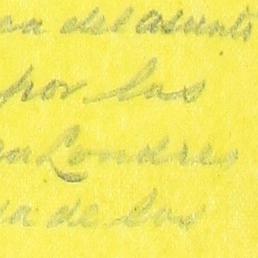 del asunto
por los
Londres
de los